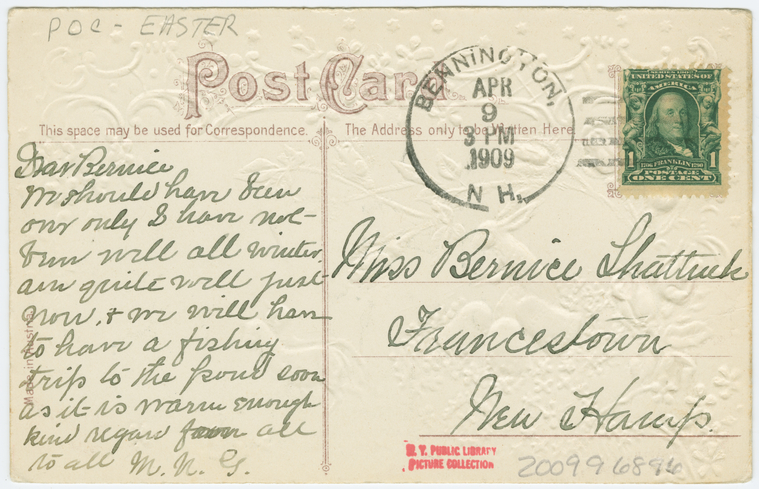 POC - EASTER
Post Card
This space may be used for Correspondence.
The Address only to be Written Here.
BENNINGTON,
APR
9
3 PM
1909
N H.
SERIES 1902
UNITED STATES OF
AMERICA
1 FRANKLIN 1
POSTAGE
ONE CENT
Dear Bernice
We should have been
our only I have not
been well all winter
am quite well just
now, & we will have
to have a fishing
trip to the pond soon
as it is warm enough
kind regard from all
to all M. N. G.
Made in Austria
Miss Bernice Shattuck
Francestown
New Hamp.
N. Y. PUBLIC LIBRARY
PICTURE COLLECTION
200996896